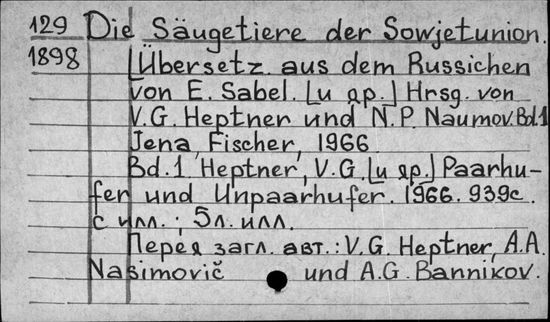 129 Die Säugetiere der Sowjetunion.
1898 [Übersetz. aus dem Russichen
von E. Sabel. [и др.] Hrsg. von
V.G. Heptner und N.P. Naumov. Bd.1
Jena, Fischer, 1966
Bd.1 Heptner, V.G. [и др.] Paarhu-
fer und Unpaarhufer. 1966. 939с.
с илл.; 5л. илл.
Перед загл. авт.: V.G. Heptner, A.A.
Nasimovič und A.G. Bannikov.